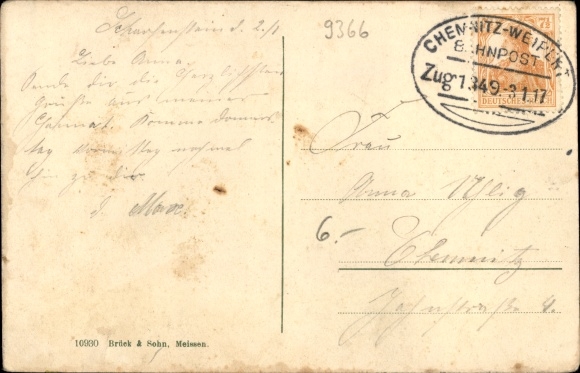 Scharfenstein d. 2./1
Liebe Anna
Sende dir die herzlichsten
Grüße aus meiner
Heimat. Komme Donners
tag Vormittag nochmal
hin zu dir.
d.
9366
CHEMNITZ-WEIPERT
BAHNPOST
Zug 1349 -3 1 17
7½
DEUTSCHES
Frau
Anna Uhlig
6.-
Chemnitz
Jahnstraße 4.
10930 Brück & Sohn, Meissen.